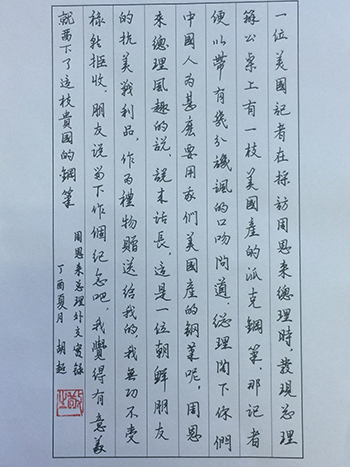 一位美國記者在採訪周恩来總理時，發現总理
辦公桌上有一枝美國產的派克鋼筆，那記者
便以帶有幾分譏諷的口吻問道，總理閣下你們
中國人为甚麽要用我們美國產的鋼筆呢，周恩
来總理風趣的說，說来話長，這是一位朝鮮朋友
的抗美戰利品，作为禮物贈送给我的，我無功不受
祿就拒收，朋友说留下作個纪念吧，我覺得有意義
就留下了這枝貴國的鋼筆
周恩来总理外交實錄
丁酉夏月 胡超